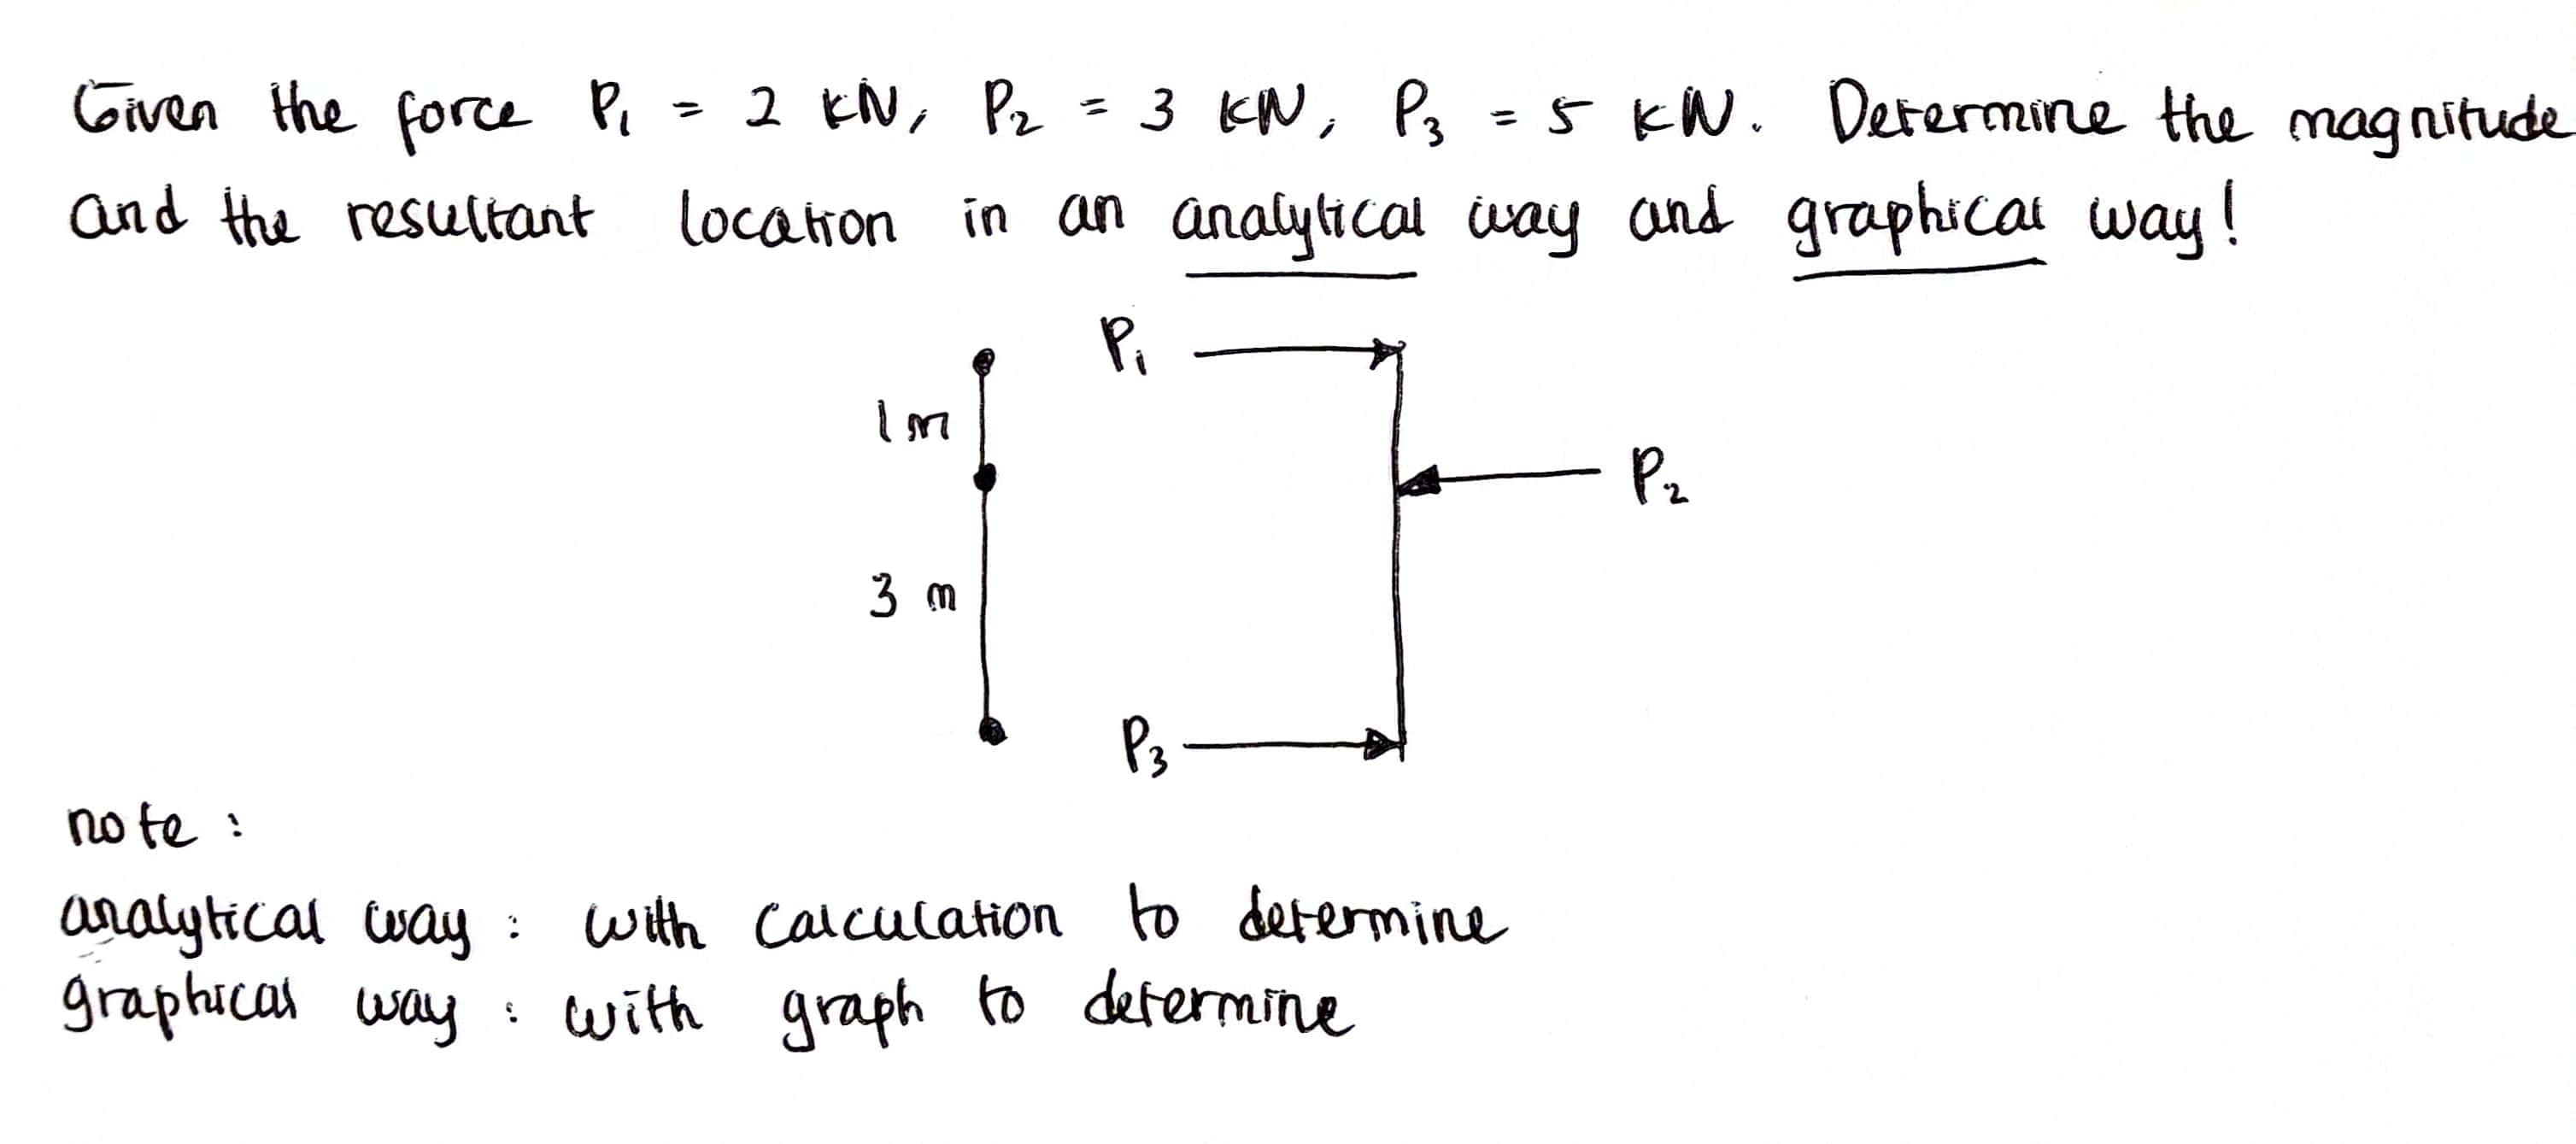 Given the force P₁ = 2 kN, P₂ = 3 kN, P₃ = 5 kN. Determine the magnitude
and the resultant location in an analytical way and graphical way!
P₁
1 m
P₂
3 m
P₃
note :
analytical way : with calculation to determine
graphical way : with graph to determine